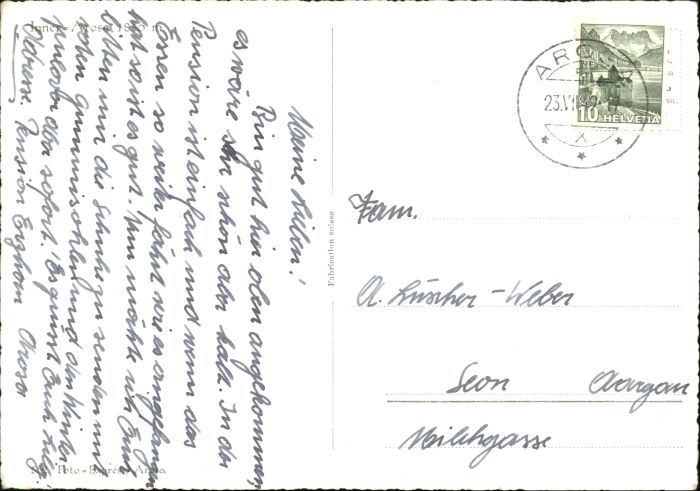 Inner-Arosa 1850 m
Meine Lieben!
Bin gut hier oben angekommen,
es wäre schön aber kalt. In der
Pension ist einfach und wenn das
Essen so weiter fährt wie es angefangen
hat so ist es gut. Nun möchte ich Euch
bitten mir die Schuhe zu senden mit
den Gummisohlen und den
aber sofort. Es grüsst Euch
Adresse. Pension Erzhorn Arosa
Foto-Express Arosa
Fabrication suisse
AROSA
23.VI
10 HELVETIA
X
Fam.
A. Lüscher-Weber
Seon Aargau
Milchgasse